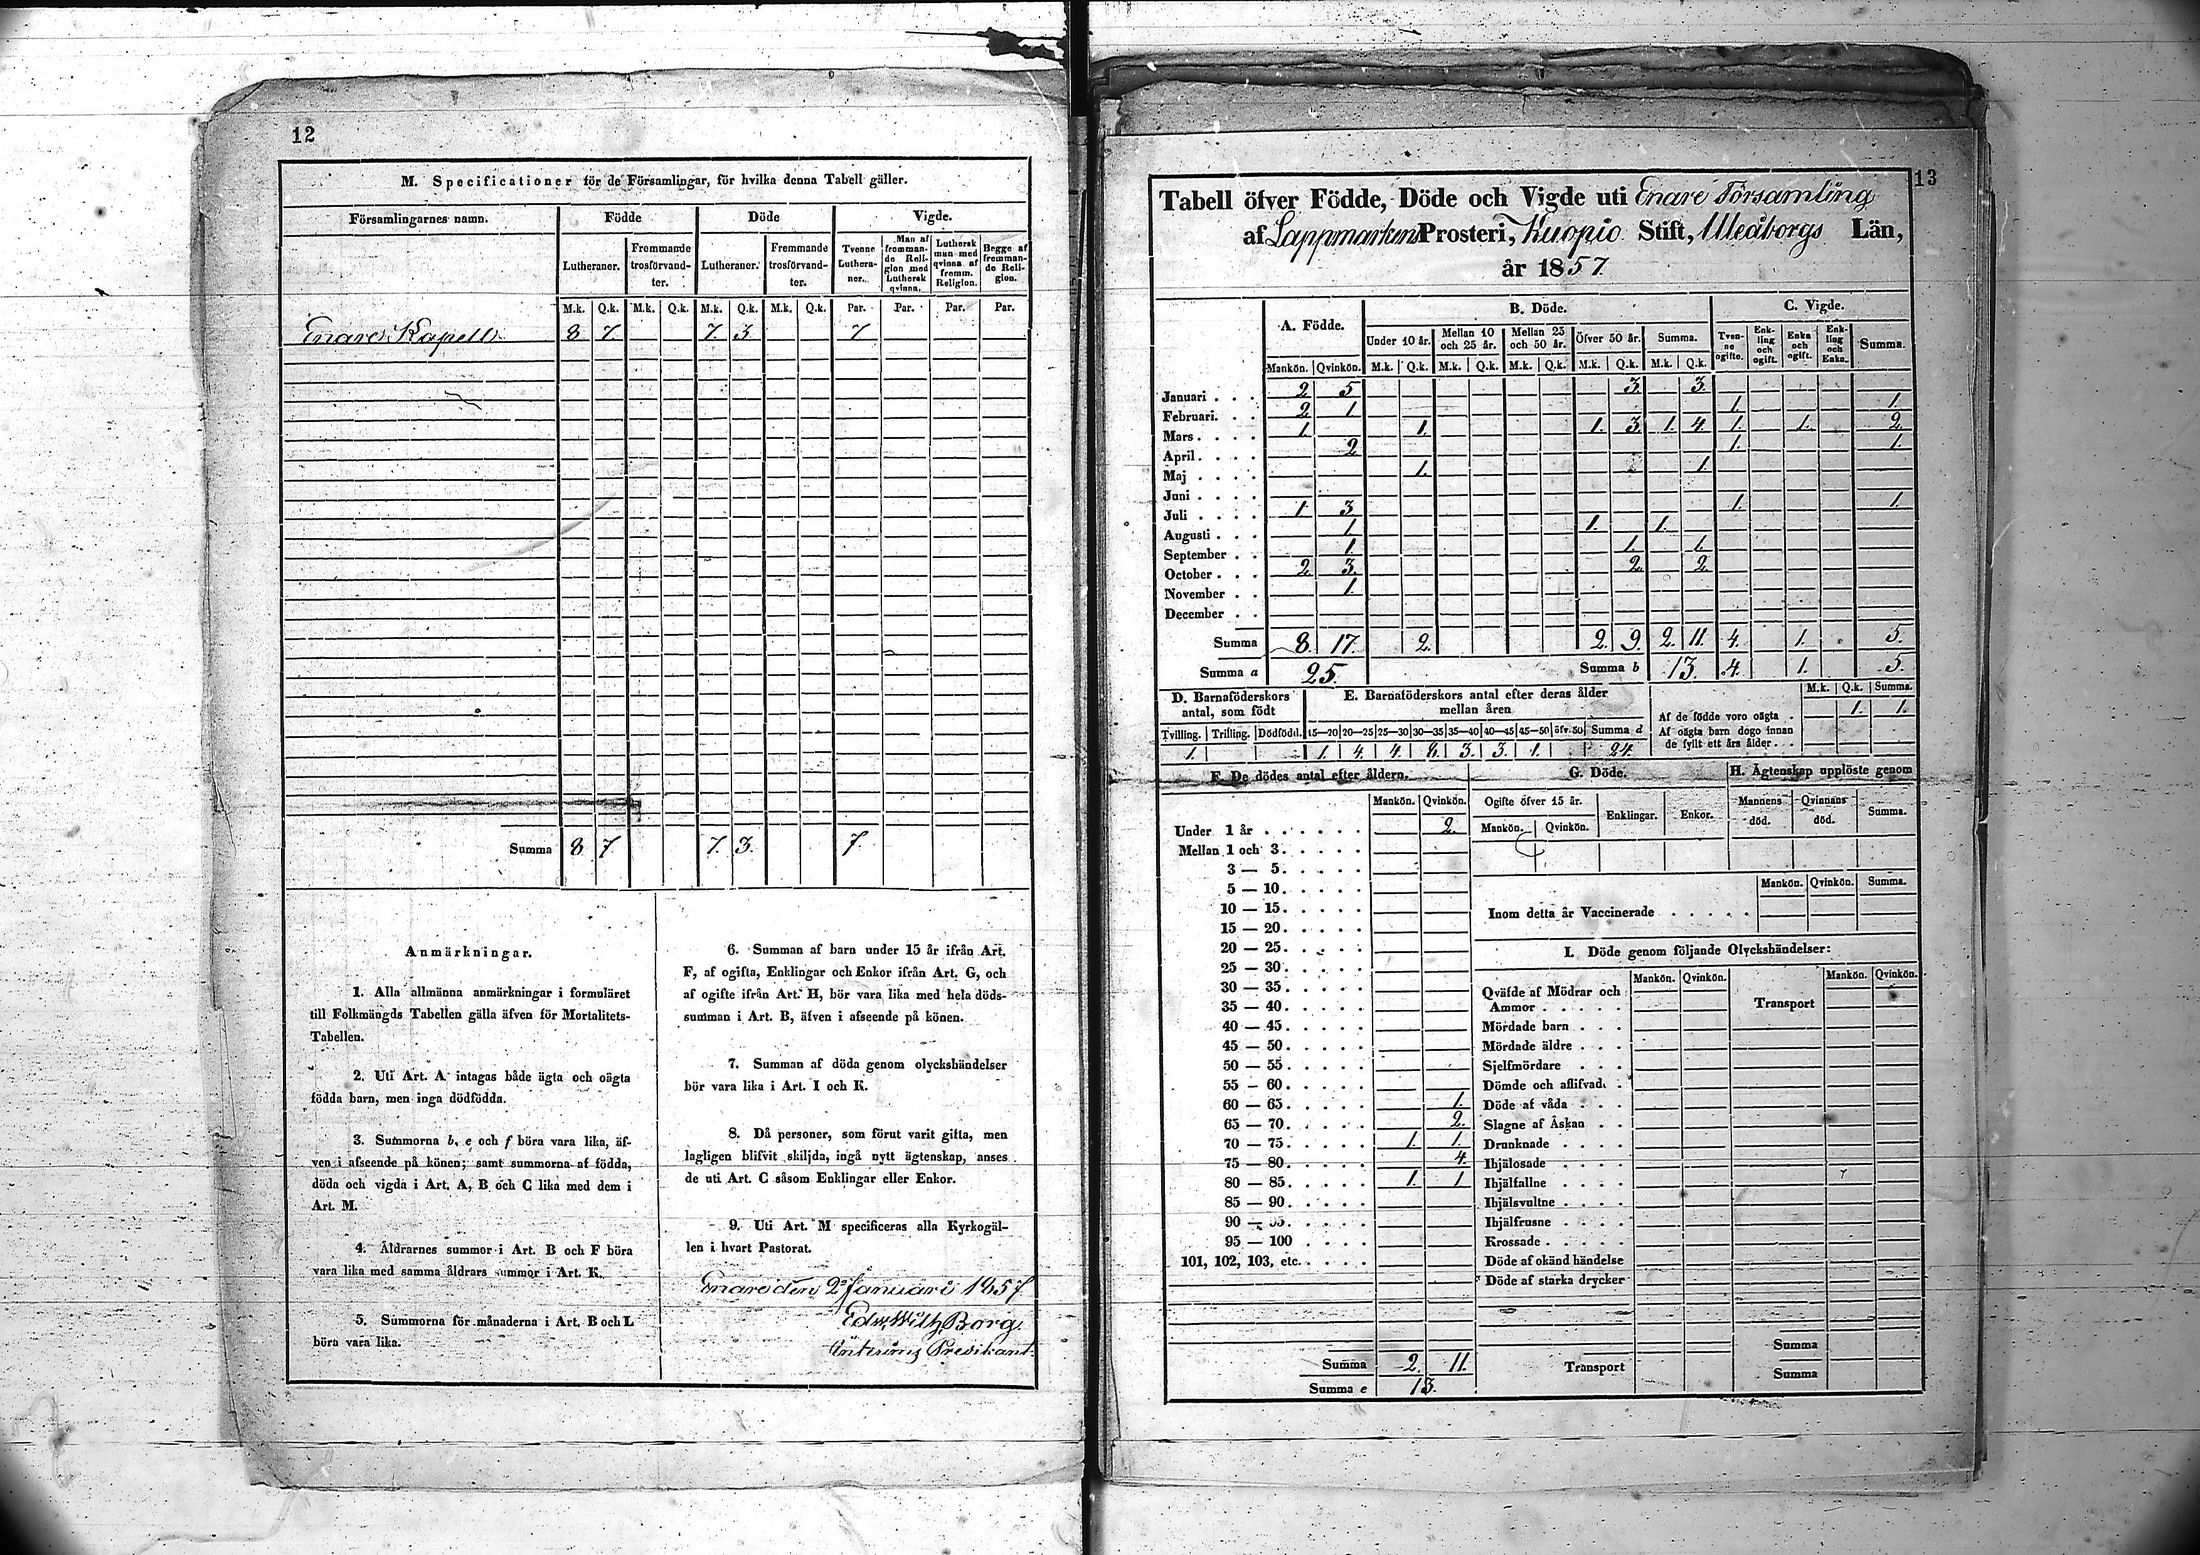 12
M. Specificationer för de Församlingar, för hvilka denna Tabell gäller.
Församlingarnes namn. Födde Döde Vigde.
Lutheraner. Fremmande trosförvandter. Lutheraner. Fremmande trosförvandter. Tvenne Lutheraner. Man af fremmande Religion med Luthersk qvinna. Luthersk man med qvinna af fremm. Religion. Begge af fremmande Religion.
M.k. Q.k. M.k. Q.k. M.k. Q.k. M.k. Q.k. Par. Par. Par. Par.
Enare Kapell 8 7. 7. 3. 7
Summa 8 7 7. 3. 7.
Anmärkningar.
1. Alla allmänna anmärkningar i formuläret
till Folkmängds Tabellen gälla äfven för Mortalitets-
Tabellen.
2. Uti Art. A intagas både ägta och oägta
födda barn, men inga dödfödda.
3. Summorna b, e och f böra vara lika, äf-
ven i afseende på könen; samt summorna af födda,
döda och vigda i Art. A, B och C lika med dem i
Art. M.
4. Åldrarnes summor i Art. B och F böra
vara lika med samma åldrars summor i Art. K.
5. Summorna för månaderna i Art. B och L
böra vara lika.
6. Summan af barn under 15 år ifrån Art.
F, af ogifta, Enklingar och Enkor ifrån Art. G, och
af ogifte ifrån Art. H, bör vara lika med hela döds-
summan i Art. B, äfven i afseende på könen.
7. Summan af döda genom olyckshändelser
bör vara lika i Art. I och K.
8. Då personer, som förut varit gifta, men
lagligen blifvit skiljda, ingå nytt ägtenskap, anses
de uti Art. C såsom Enklingar eller Enkor.
9. Uti Art. M specificeras alla Kyrkogäl-
len i hvart Pastorat.
Enare den 2 Januari 1857
Edv. Wilh. Borg.
Interims Predikant.
13
Tabell öfver Födde, Döde och Vigde uti Enare Församling
af Lappmarkens Prosteri, Kuopio Stift, Uleåborgs Län,
år 1857
A. Födde. B. Döde. C. Vigde.
Under 10 år. Mellan 10 och 25 år. Mellan 25 och 50 år. Öfver 50 år. Summa. Tvenne ogifte. Enkling och ogift. Enka och ogift. Enkling och Enka. Summa.
Mankön. Qvinkön. M.k. Q.k. M.k. Q.k. M.k. Q.k. M.k. Q.k. M.k. Q.k.
Januari . . . 2 5 3. 3.
Februari. . . 2 1 1. 1.
Mars . . . . 1. 1. 1. 3. 1. 4. 1. 1. 2.
April . . . . 2 1. 1.
Maj . . . . 1. 1.
Juni . . . .
Juli . . . . 1 3 1. 1.
Augusti . . . 1. 1. 1.
September . . 1. 1. 1.
October . . . 2 3. 2. 2.
November . . 1.
December . .
Summa 8. 17. 2. 2. 9. 2. 11. 4. 1. 5.
Summa a 25. Summa b 13. 4. 1. 5.
D. Barnaföderskors antal, som födt
E. Barnaföderskors antal efter deras ålder mellan åren
M.k. Q.k. Summa.
Af de födde voro oägta . 1. 1.
Af oägta barn dogo innan
de fyllt ett års ålder . . .
Tvilling. Trilling. Dödfödd. 15—20 20—25 25—30 30—35 35—40 40—45 45—50 öfv. 50 Summa d
1. 1. 4. 4. 8. 3. 3. 1. 24.
F. De dödes antal efter åldern.
Mankön. Qvinkön.
Under 1 år . . . . . . 2.
Mellan 1 och 3. . . . .
3 — 5. . . . .
5 — 10. . . . .
10 — 15. . . . .
15 — 20. . . . .
20 — 25. . . . .
25 — 30. . . . .
30 — 35. . . . .
35 — 40. . . . .
40 — 45. . . . .
45 — 50. . . . .
50 — 55. . . . .
55 — 60. . . . .
60 — 65. . . . . 1.
65 — 70. . . . . 2.
70 — 75. . . . . 1. 1.
75 — 80. . . . . 4.
80 — 85. . . . . 1. 1
85 — 90. . . . .
90 — 95. . . . .
95 — 100 . . . .
101, 102, 103, etc. . . . .
Summa 2. 11.
Summa e 13.
G. Döde.
Ogifte öfver 15 år. Enklingar. Enkor.
Mankön. Qvinkön.
H. Ägtenskap upplöste genom
Mannens död. Qvinnans död. Summa.
Mankön. Qvinkön. Summa.
Inom detta år Vaccinerade . . . . .
I. Döde genom följande Olyckshändelser:
Mankön. Qvinkön. Mankön. Qvinkön.
Qväfde af Mödrar och
Ammor . . . . . Transport
Mördade barn . . .
Mördade äldre . . .
Sjelfmördare . . .
Dömde och aflifvade .
Döde af våda . . .
Slagne af Åskan . .
Drunknade . . . .
Ihjälosade . . . .
Ihjälfallne . . . .
Ihjälsvultne . . . .
Ihjälfrusne . . . .
Krossade . . . . .
Döde af okänd händelse
Döde af starka drycker
Summa
Transport Summa